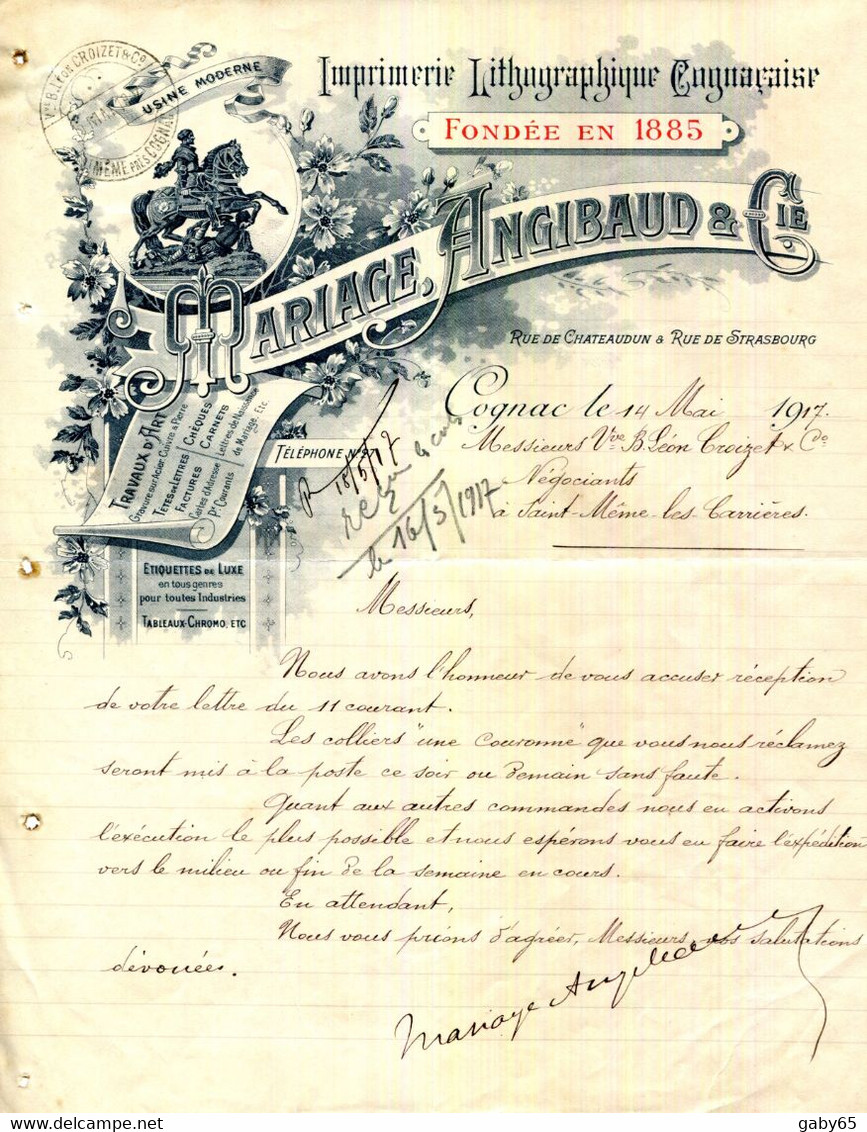 Vve B. Léon CROIZET & Co
St MÊME PRÈS COGNAC
USINE MODERNE
Imprimerie Lithographique Cognaçaise
FONDÉE EN 1885
MARIAGE, ANGIBAUD & CIE
RUE DE CHATEAUDUN & RUE DE STRASBOURG
TRAVAUX D'ART
Gravure sur Acier, Cuivre & Pierre
TETES DE LETTRES CHÈQUES
FACTURES CARNETS
Cartes d'Adresse Lettres de Naissance
Px Courants de Mariage, Etc.
TÉLÉPHONE N° 27
ETIQUETTES DE LUXE
en tous genres
pour toutes Industries
TABLEAUX-CHROMO, ETC
Cognac le 14 Mai 1917.
Messieurs Vve B. Léon Croizet & Co
Négociants
à Saint-Même-les-Carrières.
R 18/5/17
le 16/5/1917
Messieurs,
Nous avons l'honneur de vous accuser réception
de votre lettre du 11 courant.
Les colliers "une couronne" que vous nous réclamez
seront mis à la poste ce soir ou demain sans faute.
Quant aux autres commandes nous en activons
l'exécution le plus possible et nous espérons vous en faire l'expédition
vers le milieu ou fin de la semaine en cours.
En attendant,
Nous vous prions d'agréer, Messieurs, nos salutations
dévouées.
Mariage Angibaud
gaby65